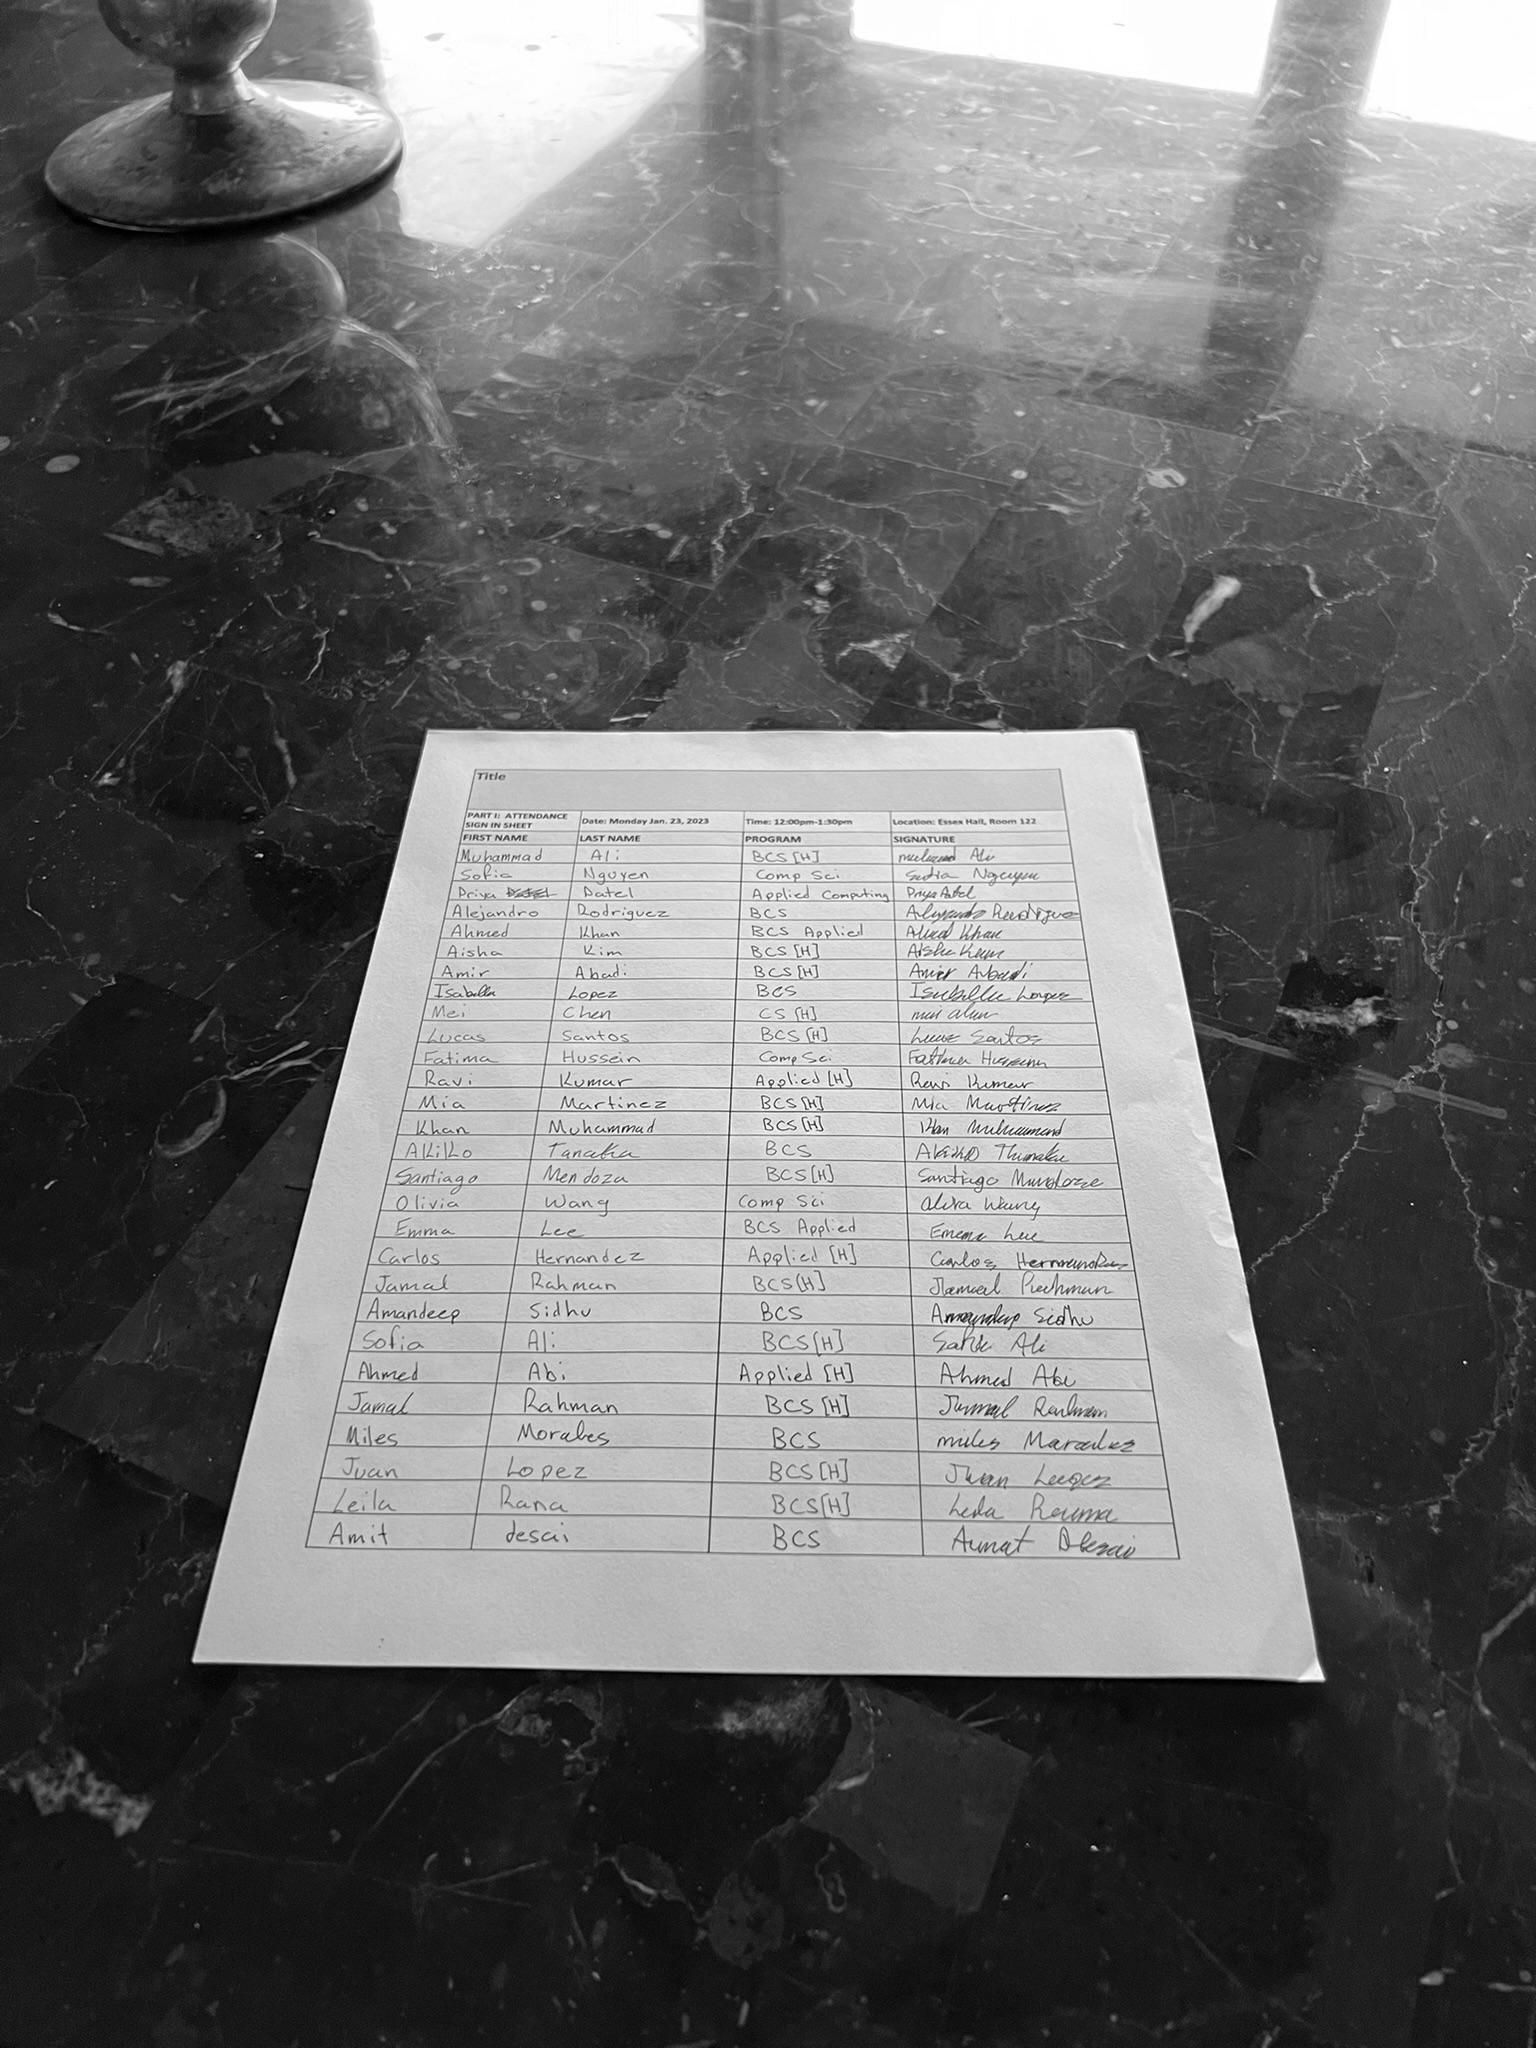 Title
PART I: ATTENDANCE SIGN IN SHEET Date: Monday Jan. 23, 2023 Time: 12:00pm-1:30pm Location: Essex Hall, Room 122
FIRST NAME LAST NAME PROGRAM SIGNATURE
Muhammad Ali BCS [H] Ali
Sofia Nguyen Comp Sci Sofia Nguyen
Priya Patel Applied Computing Priya Patel
Alejandro Rodriguez BCS Alejandro Rodriguez
Ahmed Khan BCS Applied Ahmed Khan
Aisha Kim BCS [H] Aisha Kim
Amir Abadi BCS [H] Amir Abadi
Isabella Lopez BCS Isabella Lopez
Mei Chen CS [H] mei chen
Lucas Santos BCS [H] Lucas Santos
Fatima Hussein Comp Sci Fatima Hussein
Ravi Kumar Applied [H] Ravi Kumar
Mia Martinez BCS [H] Mia Martinez
Khan Muhammad BCS [H] Khan Muhammad
Akiko Tanaka BCS Akiko
Santiago Mendoza BCS [H] Santiago
Olivia Wang Comp Sci Wang
Emma Lee BCS Applied Emma Lee
Carlos Hernandez Applied [H] Carlos Hernandez
Jamal Rahman BCS [H] Jamal Rahman
Amandeep Sidhu BCS Amandeep Sidhu
Sofia Ali BCS [H] Ali
Ahmed Abi Applied [H] Ahmed Abi
Jamal Rahman BCS [H] Jamal Rahman
Miles Morales BCS miles
Juan Lopez BCS [H] Juan Lopez
Leila Rana BCS [H] Leila
Amit desai BCS